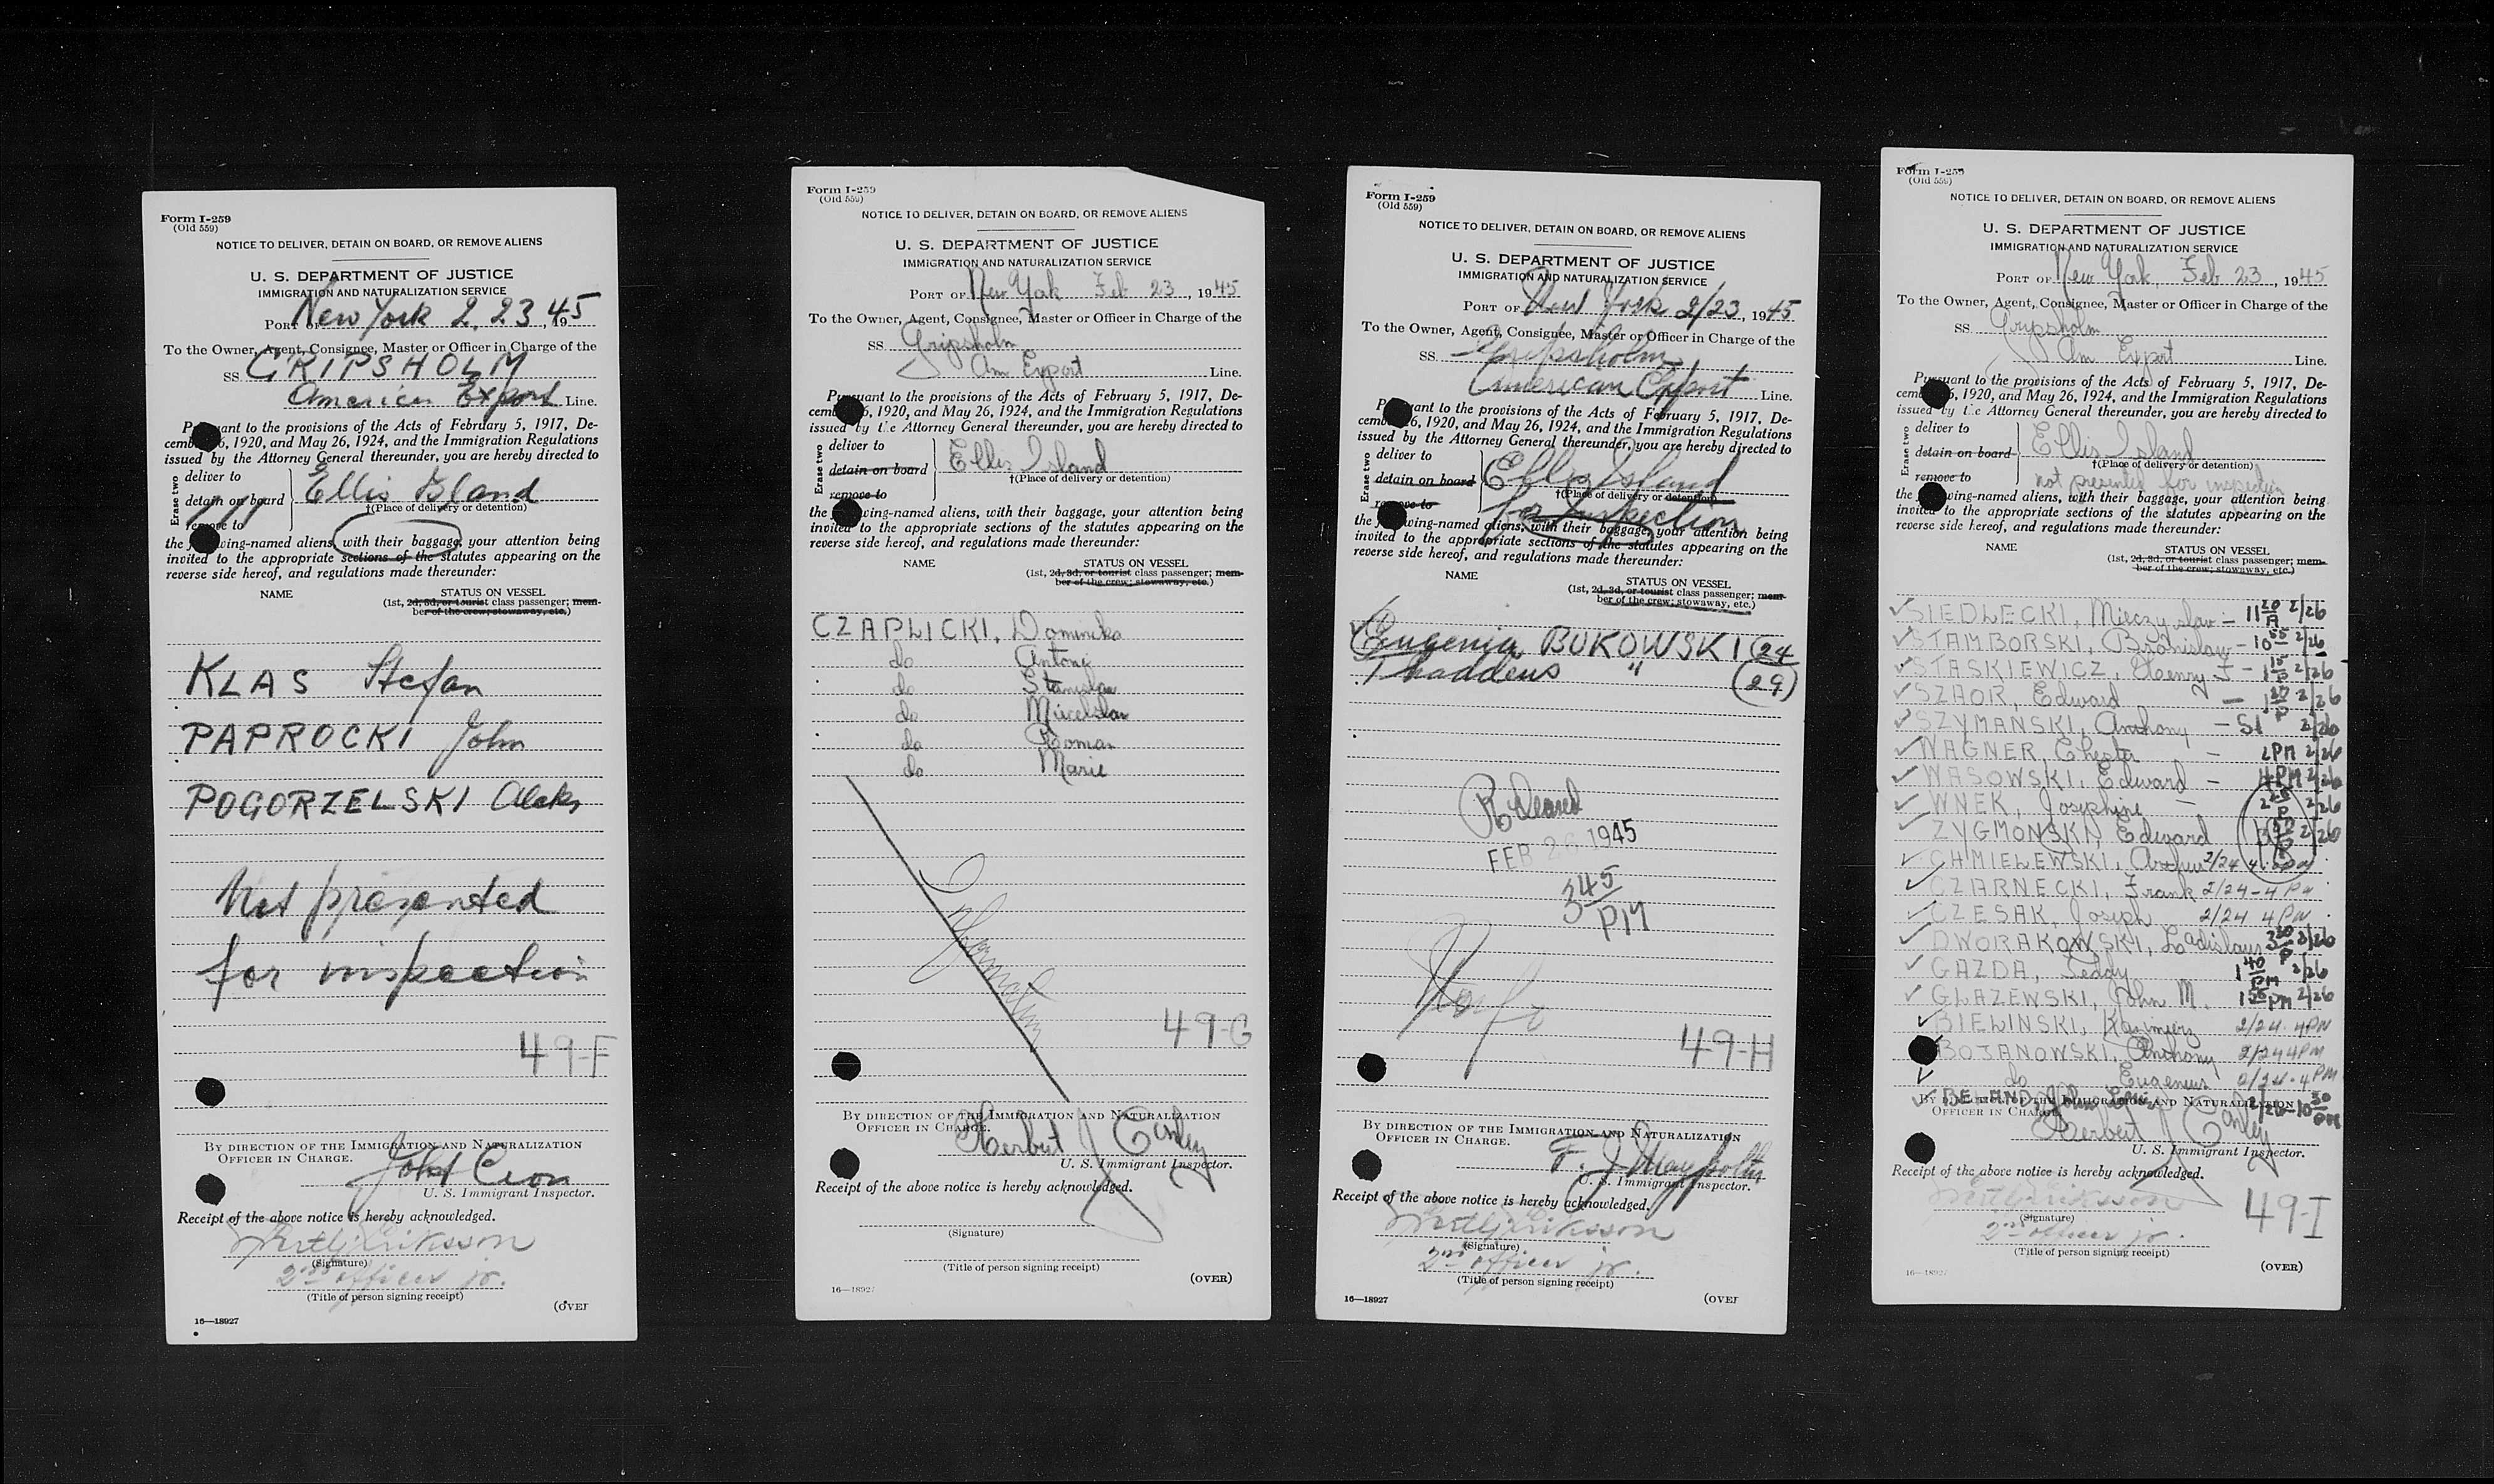 Form I-259
(Old 559)
NOTICE TO DELIVER, DETAIN ON BOARD, OR REMOVE ALIENS
U. S. DEPARTMENT OF JUSTICE
IMMIGRATION AND NATURALIZATION SERVICE
PORT OF New York 2.23, 1945
To the Owner, Agent, Consignee, Master or Officer in Charge of the
SS. GRIPSHOLM
American Export Line.
Pursuant to the provisions of the Acts of February 5, 1917, De-
cember 26, 1920, and May 26, 1924, and the Immigration Regulations
issued by the Attorney General thereunder, you are hereby directed to
Erase two
deliver to
detain on board
remove to
Ellis Island
†(Place of delivery or detention)
the following-named aliens, with their baggage, your attention being
invited to the appropriate sections of the statutes appearing on the
reverse side hereof, and regulations made thereunder:
NAME
STATUS ON VESSEL
(1st, 2d, 3d, or tourist class passenger; mem-
ber of the crew; stowaway, etc.)
KLAS Stefan
PAPROCKI John
POGORZELSKI Aleks
Not presented
for inspection
49-F
BY DIRECTION OF THE IMMIGRATION AND NATURALIZATION
OFFICER IN CHARGE.
U. S. Immigrant Inspector.
Receipt of the above notice is hereby acknowledged.
Eriksson
(Signature)
2nd officer jr.
(Title of person signing receipt)
(OVER
16—18927
Form I-259
(Old 559)
NOTICE TO DELIVER, DETAIN ON BOARD, OR REMOVE ALIENS
U. S. DEPARTMENT OF JUSTICE
IMMIGRATION AND NATURALIZATION SERVICE
PORT OF New York Feb 23, 1945
To the Owner, Agent, Consignee, Master or Officer in Charge of the
SS. Gripsholm
Am Export Line.
Pursuant to the provisions of the Acts of February 5, 1917, De-
cember 26, 1920, and May 26, 1924, and the Immigration Regulations
issued by the Attorney General thereunder, you are hereby directed to
Erase two
deliver to
detain on board
remove to
Ellis Island
†(Place of delivery or detention)
the following-named aliens, with their baggage, your attention being
invited to the appropriate sections of the statutes appearing on the
reverse side hereof, and regulations made thereunder:
NAME
STATUS ON VESSEL
(1st, 2d, 3d, or tourist class passenger; mem-
ber of the crew; stowaway, etc.)
CZAPLICKI, Dominika
do Antoni
do Stanislaw
do Miecelslaw
do Roman
do Marie
Information
49-G
BY DIRECTION OF THE IMMIGRATION AND NATURALIZATION
OFFICER IN CHARGE.
Herbert J Conley
U. S. Immigrant Inspector.
Receipt of the above notice is hereby acknowledged.
(Signature)
(Title of person signing receipt)
(OVER)
16—18927
Form I-259
(Old 559)
NOTICE TO DELIVER, DETAIN ON BOARD, OR REMOVE ALIENS
U. S. DEPARTMENT OF JUSTICE
IMMIGRATION AND NATURALIZATION SERVICE
PORT OF New York 2/23, 1945
To the Owner, Agent, Consignee, Master or Officer in Charge of the
SS. Gripsholm
American Export Line.
Pursuant to the provisions of the Acts of February 5, 1917, De-
cember 26, 1920, and May 26, 1924, and the Immigration Regulations
issued by the Attorney General thereunder, you are hereby directed to
Erase two
deliver to
detain on board
remove to
Ellis Island
†(Place of delivery or detention)
for Inspection
the following-named aliens, with their baggage, your attention being
invited to the appropriate sections of the statutes appearing on the
reverse side hereof, and regulations made thereunder:
NAME
STATUS ON VESSEL
(1st, 2d, 3d, or tourist class passenger; mem-
ber of the crew; stowaway, etc.)
Eugenia BUKOWSKI (24
Thaddeus " (29)
FEB 26 1945
3 45
PM
49-H
BY DIRECTION OF THE IMMIGRATION AND NATURALIZATION
OFFICER IN CHARGE.
U. S. Immigrant Inspector.
Receipt of the above notice is hereby acknowledged.
Eriksson
(Signature)
2nd officer jr.
(Title of person signing receipt)
(OVER
16—18927
Form I-259
(Old 559)
NOTICE TO DELIVER, DETAIN ON BOARD, OR REMOVE ALIENS
U. S. DEPARTMENT OF JUSTICE
IMMIGRATION AND NATURALIZATION SERVICE
PORT OF New York, Feb 23, 1945
To the Owner, Agent, Consignee, Master or Officer in Charge of the
SS. Gripsholm
Am Export Line.
Pursuant to the provisions of the Acts of February 5, 1917, De-
cember 26, 1920, and May 26, 1924, and the Immigration Regulations
issued by the Attorney General thereunder, you are hereby directed to
Erase two
deliver to
detain on board
remove to
Ellis Island
†(Place of delivery or detention)
not presented for inspection
the following-named aliens, with their baggage, your attention being
invited to the appropriate sections of the statutes appearing on the
reverse side hereof, and regulations made thereunder:
NAME
STATUS ON VESSEL
(1st, 2d, 3d, or tourist class passenger; mem-
ber of the crew; stowaway, etc.)
SIEDLECKI, Mieczyslaw - 11 20 A 2/26
STAMBORSKI, Bronislaw - 10 55 2/26
STASKIEWICZ, Henry J - 1 15 P 2/26
SZAOR, Edward - 2/26
SZYMANSKI, Anthony - 2/26
WAGNER, Chester - 2 PM 2/26
WASOWSKI, Edward - 4 PM 2/26
WNEK, Josephine - 2/26
ZYGMONSKI, Edward 2/26
CHMIELEWSKI, Arthur 2/24
CZARNECKI, Frank 2/24-4 PM
CZESAK, Joseph 2/24 4 PM
DWORAKOWSKI, Ladislaus 3 30 P 2/26
GAZDA, Teddy 1 40 PM 2/26
GLAZEWSKI, John M. 1 55 PM 2/26
BIELINSKI, Kazimierz 2/24 4PM
BOJANOWSKI, Anthony 2/24 4PM
do Eugenius 2/24-4 PM
BY DIRECTION OF THE IMMIGRATION AND NATURALIZATION
OFFICER IN CHARGE.
Herbert J Conley
U. S. Immigrant Inspector.
Receipt of the above notice is hereby acknowledged.
Eriksson
(Signature)
2nd officer jr.
(Title of person signing receipt)
49-I
(OVER)
16—18927